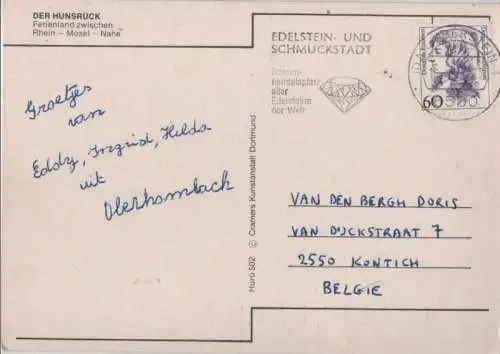 DER HUNSRÜCK
Ferienland zwischen
Rhein – Mosel – Nahe
EDELSTEIN- UND
SCHMUCKSTADT
handelsplatz
aller
Edelsteine
der Welt
60
Groetjes
van
Eddy, Ingrid, Hilda
uit
Oberhambach
VAN DEN BERGH DORIS
VAN DIJCKSTRAAT 7
2550 KONTICH
BELGIE
Hurü 502 © Cramers Kunstanstalt Dortmund